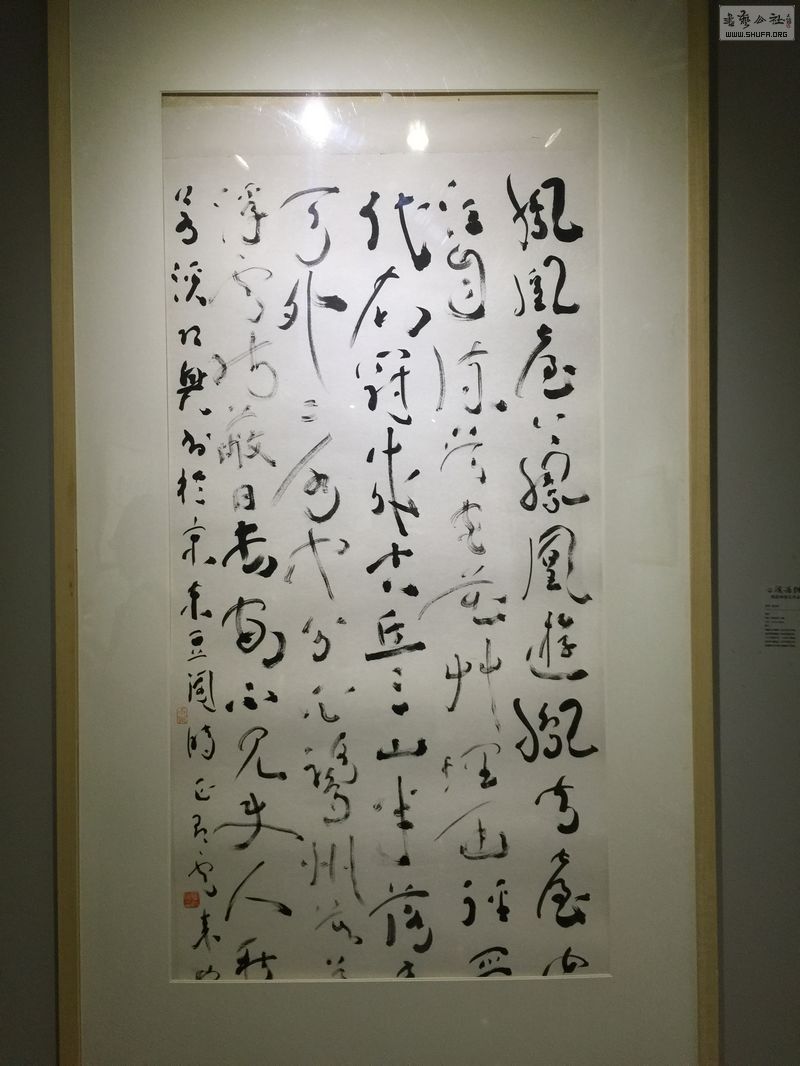 鳳凰臺上鳳凰遊鳳去臺空
江自流吳宮花艸埋幽徑晉
代衣冠成古丘三山半落青
天外二水中分白鷺洲總為
浮雲能蔽日長安不見使人愁
溪 興書於京東豆閣時正 雪
書藝公社
WWW.SHUFA.ORG